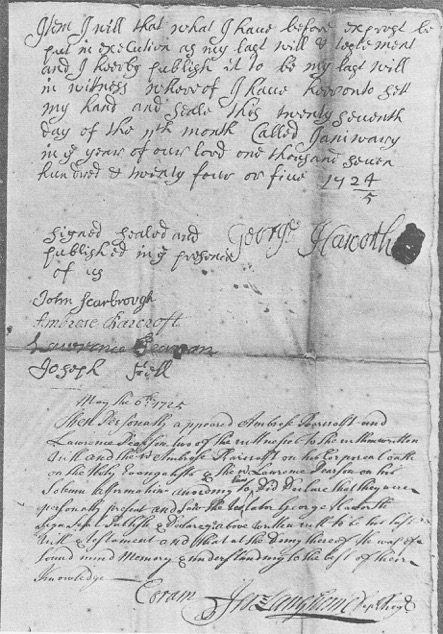 Item I will that what I have before exprost be
put in execution as my last will & testement
and I heerby publish it to be my last will
in witness wherof I have heeronto sett
my hand and seale this twenty seventh
day of the 11th month Called Janiwary
in ye year of our lord one thousand seven
hundred & twenty four or five 1724/5
signed sealed and
published in ye presence
of us
George Haworth
John Scarbrough
Ambrose Barcroft
Lawrence Pearson
Joseph Fell
May the 6th 1725
Then Personally appeared Ambrose Barcroft and
Lawrence Pearson two of the witnesses to the within written
will and the sd Ambrose Barcroft on his Corporal Oath
on the Holy Evangelists & the sd Lawrence Pearson on his
Solemn Affirmation according to Law Did Declare that they were
personally present and saw the Testator George Haworth
sign seal Publish & Declare ye above written will to be his last
Will & testament and that at the doing thereof he was of
sound mind Memory & understanding to the best of their
Knowledge
Coram